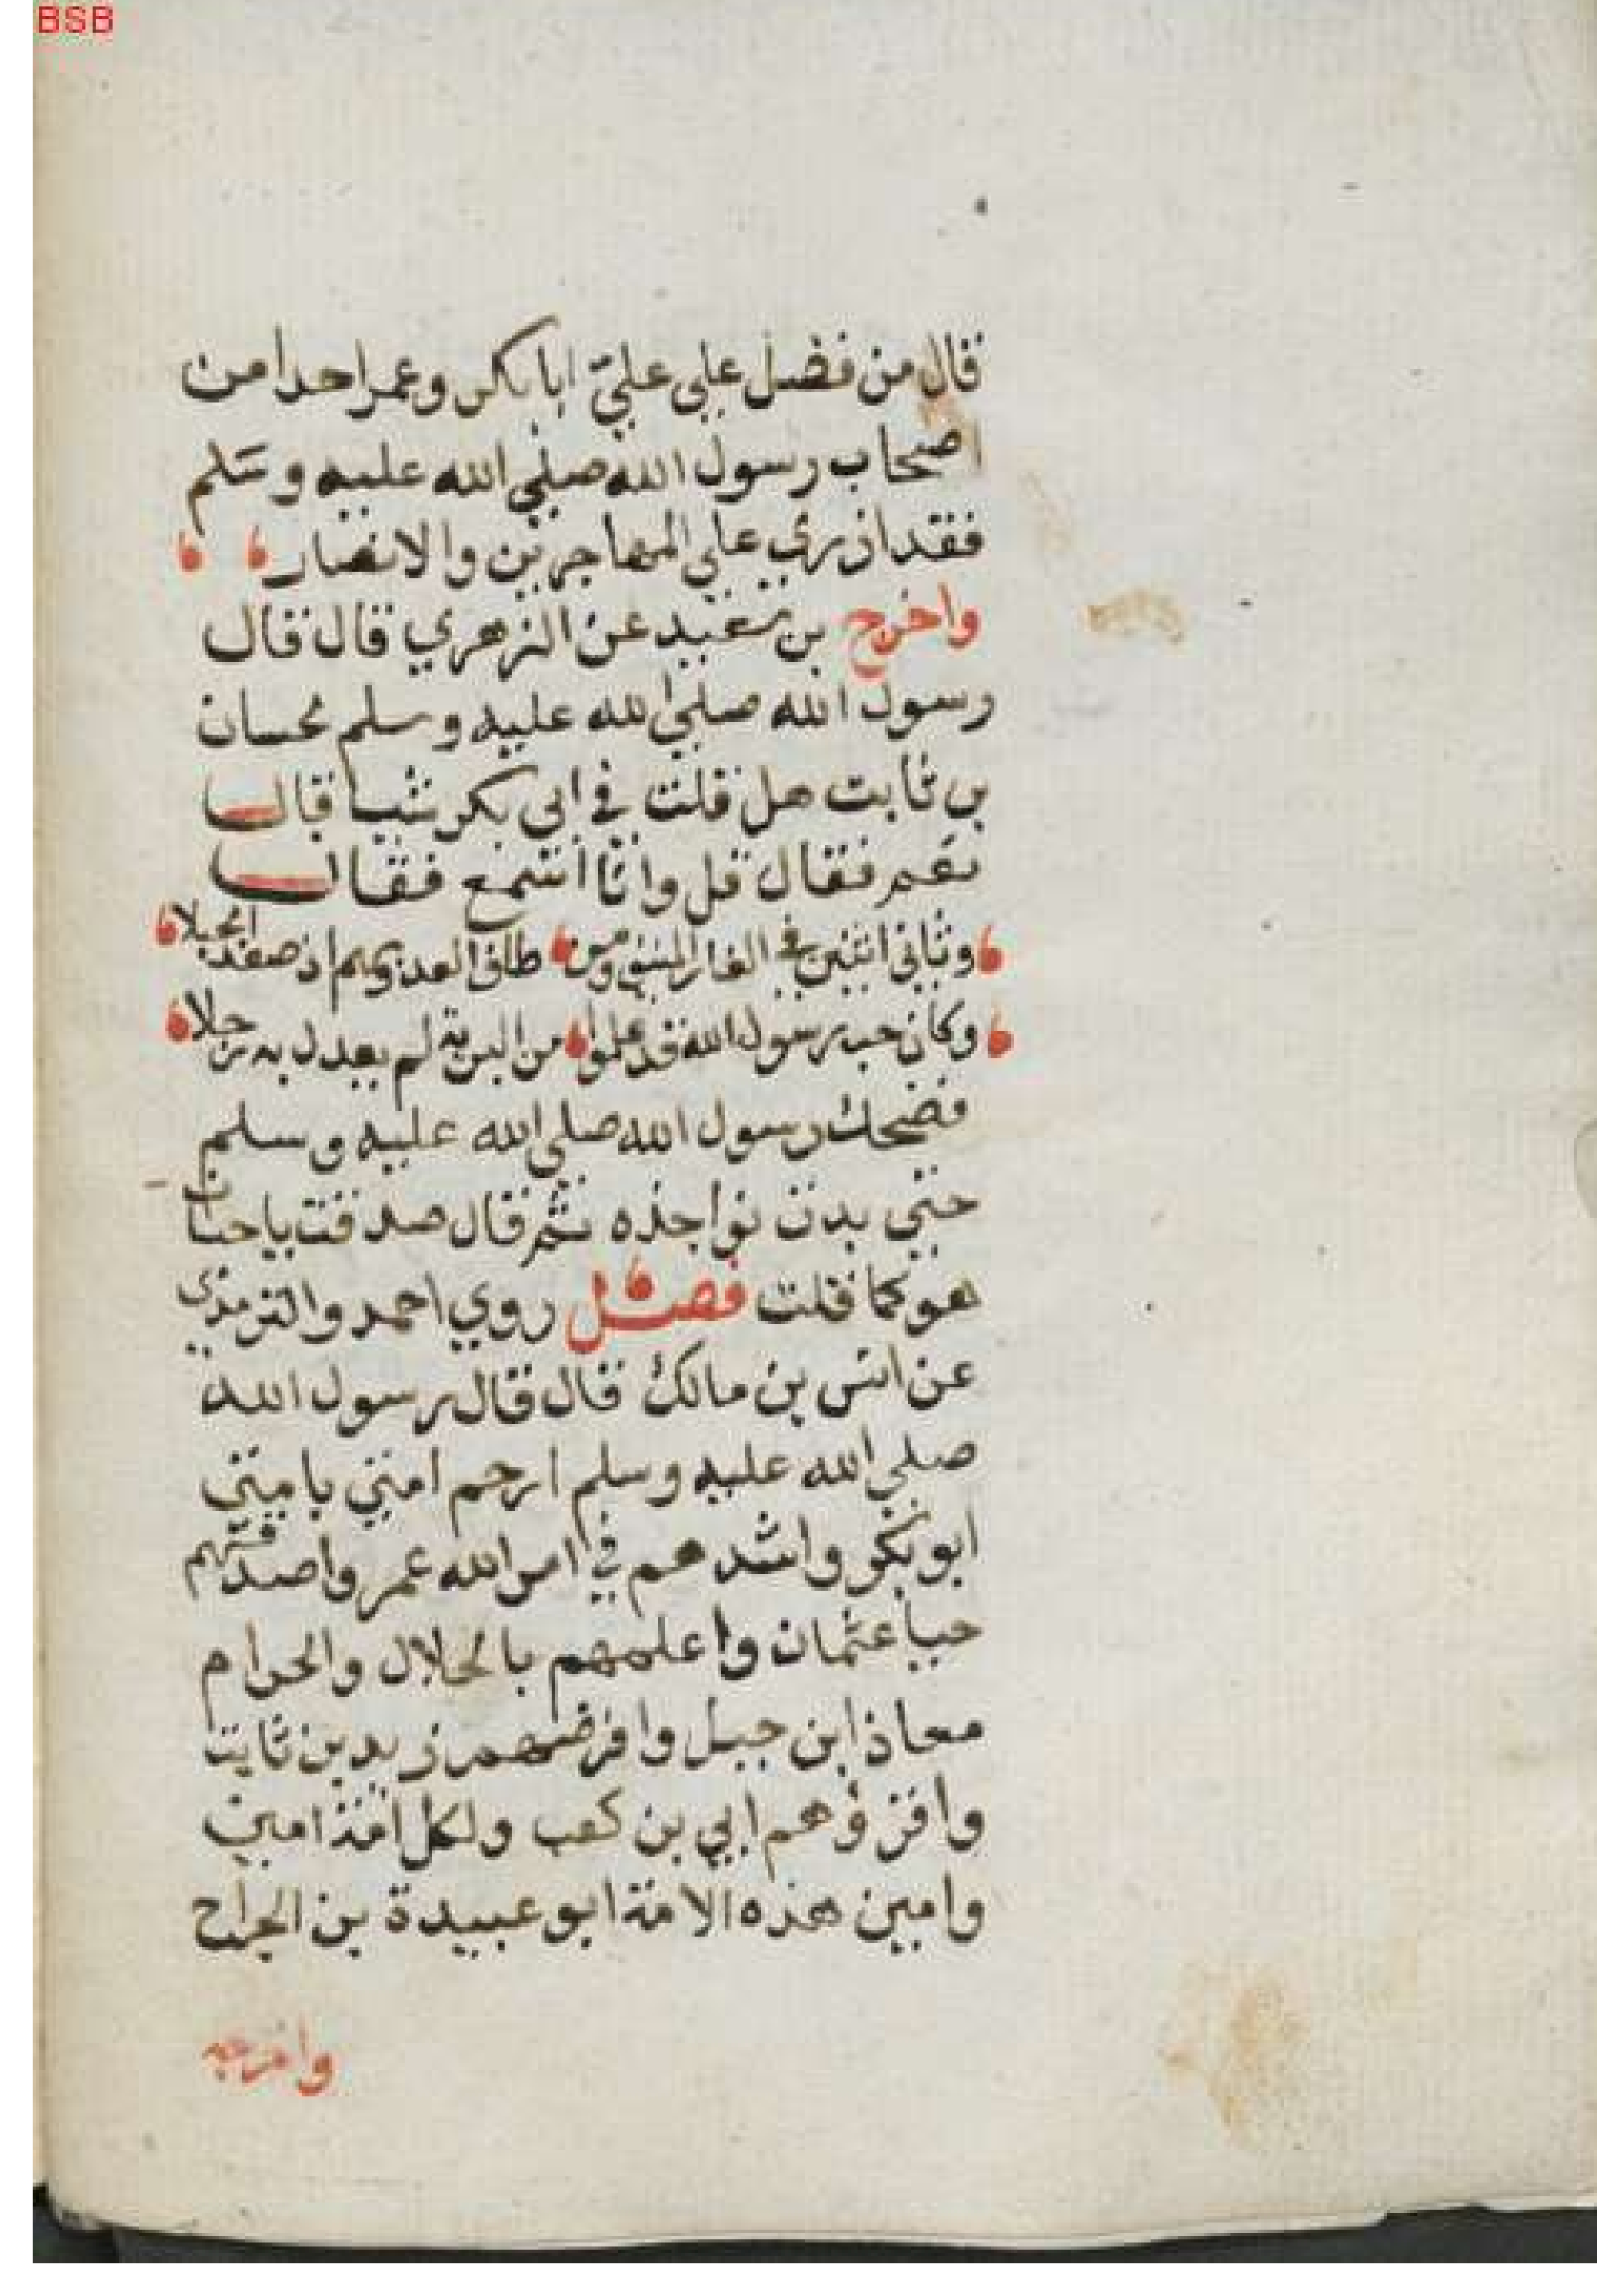 BSB
قال من فضل على علي ابا بكر وعمر احدا من
اصحاب رسول الله صلي الله عليه وسلم
فقد ازري علي المهاجرين والانصار
واخرج بن سعيد عن الزهري قال قال
رسول الله صلي الله عليه وسلم لحسان
بن ثابت هل قلت في ابي بكر شيا قال
نعم فقال قل وانا اسمع فقال
وثاني اثنين في الغار المنيف ومن طاف العدو بهم اذ صعد الجبلا
وكان حب رسول الله قد علموا من البرية لم يعدل به رجلا
فضحك رسول الله صلي الله عليه وسلم
حتي بدت نواجذه ثم قال صدقت يا حسان
هو كما قلت فصل روي احمد والترمذي
عن انس بن مالك قال قال رسول الله
صلي الله عليه وسلم ارحم امتي بامتي
ابو بكر واشدهم في امر الله عمر واصدقهم
حيا عثمان واعلمهم بالحلال والحرام
معاذ ابن جبل وافرضهم زيد بن ثابت
واقرؤهم ابي بن كعب ولكل امة امين
وامين هذه الامة ابو عبيدة بن الجراح
واخرجه